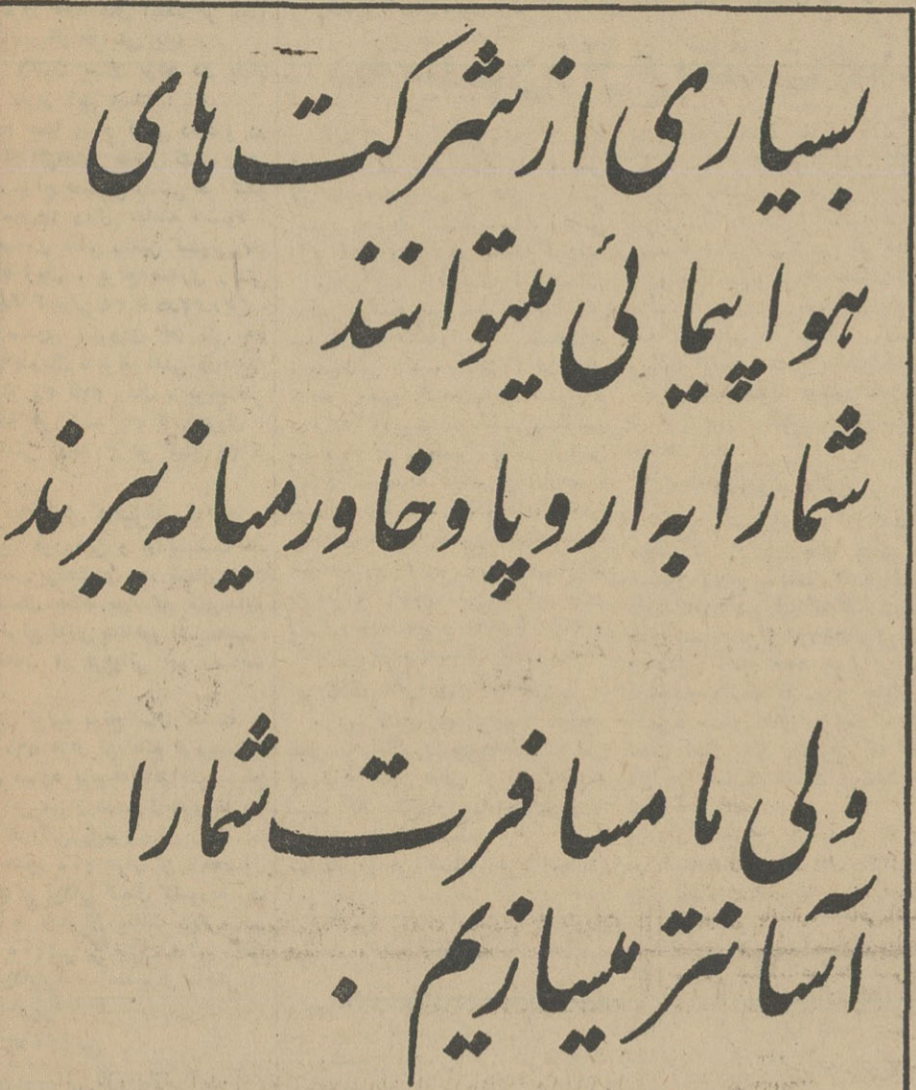 بسیاری از شرکت های
هواپیمائی میتوانند
شما را به اروپا و خاورمیانه ببرند
ولی ما مسافرت شما را
آسانتر میسازیم .